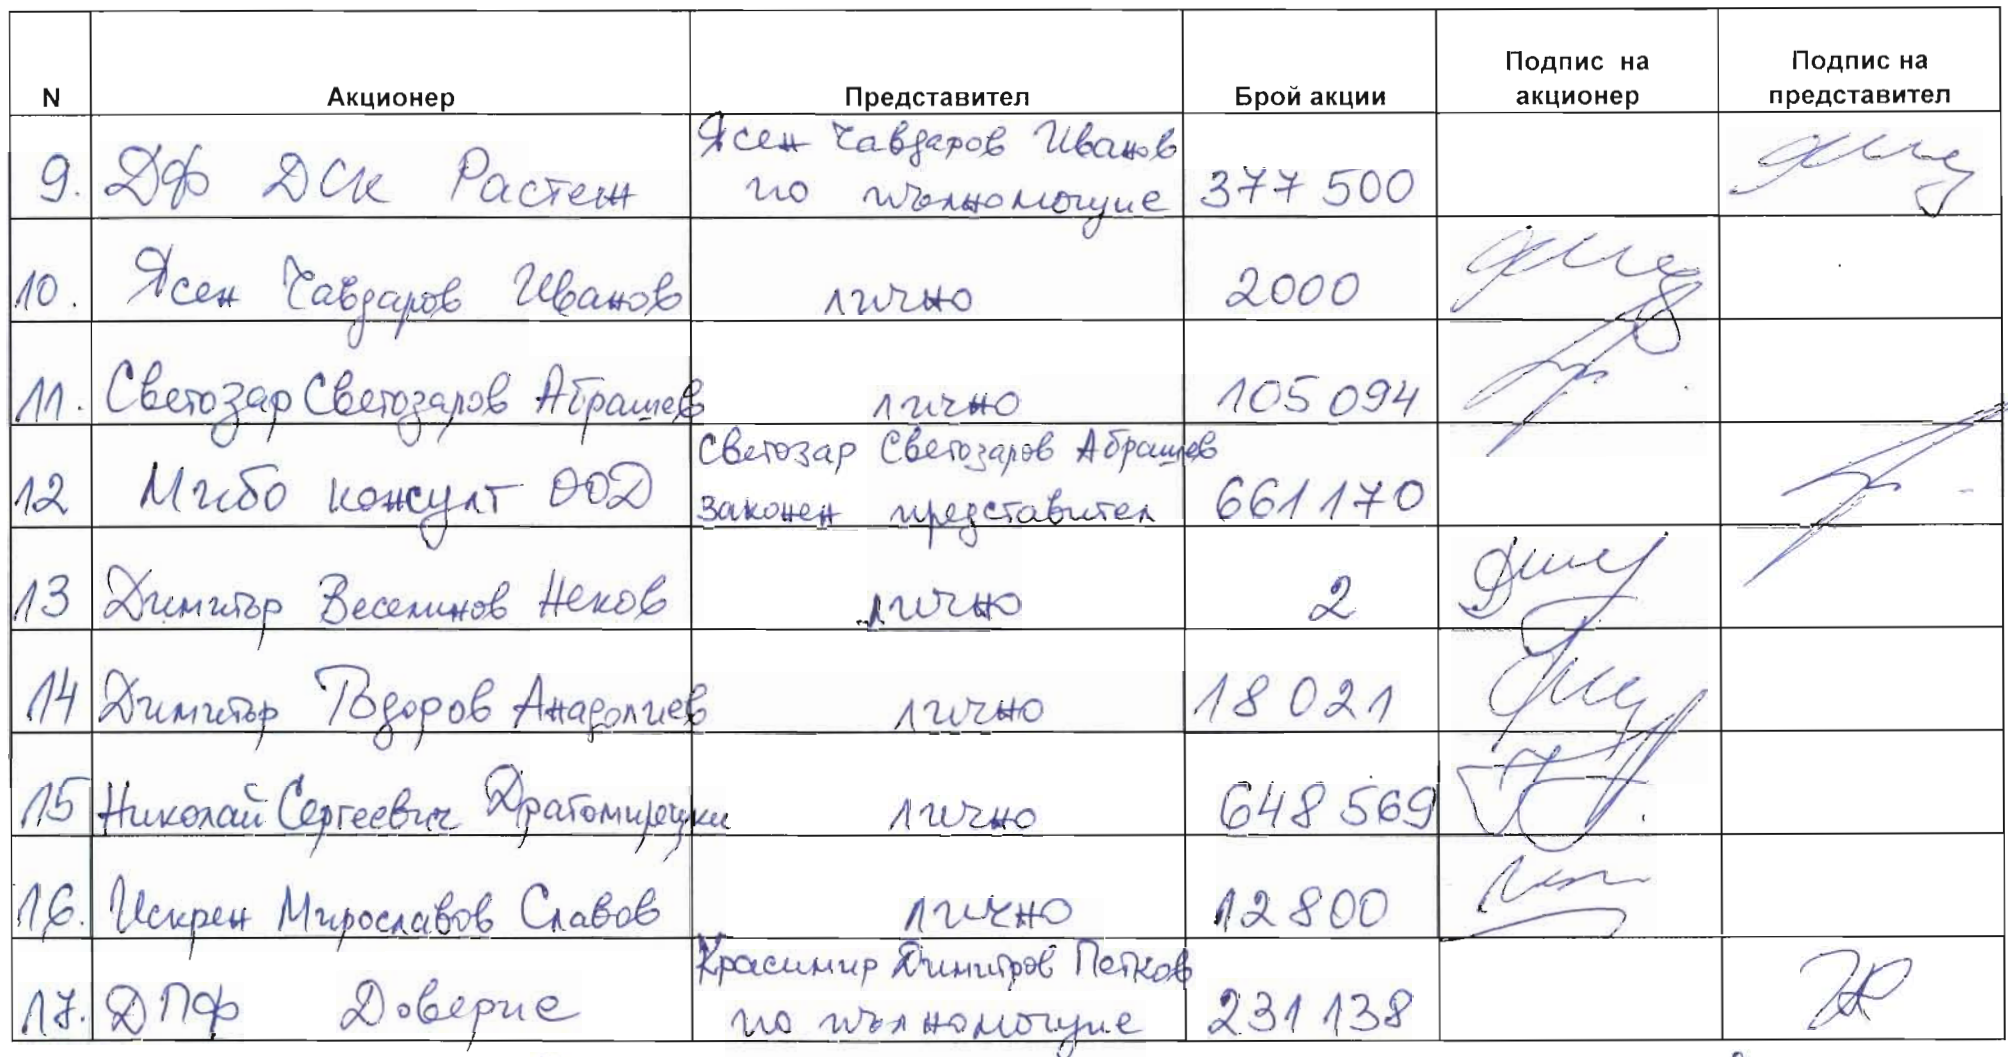 N Акционер Представител Брой акции Подпис на акционер Подпис на представител
9. ДФ ДСК Растеж Ясен Чавдаров Иванов по пълномощие 377 500
10. Ясен Чавдаров Иванов лично 2000
11. Светозар Светозаров Абрашев лично 105 094
12 Мибо консулт ООД Светозар Светозаров Абрашев законен представител 661 170
13 Димитър Веселинов Неков лично 2
14 Димитър Тодоров Анадолиев лично 18 021
15 Николай Сергеевич Драгомирецки лично 648 569
16. Искрен Мирославов Славов лично 12 800
17. ДПФ Доверие Красимир Димитров Петков по пълномощие 231 138